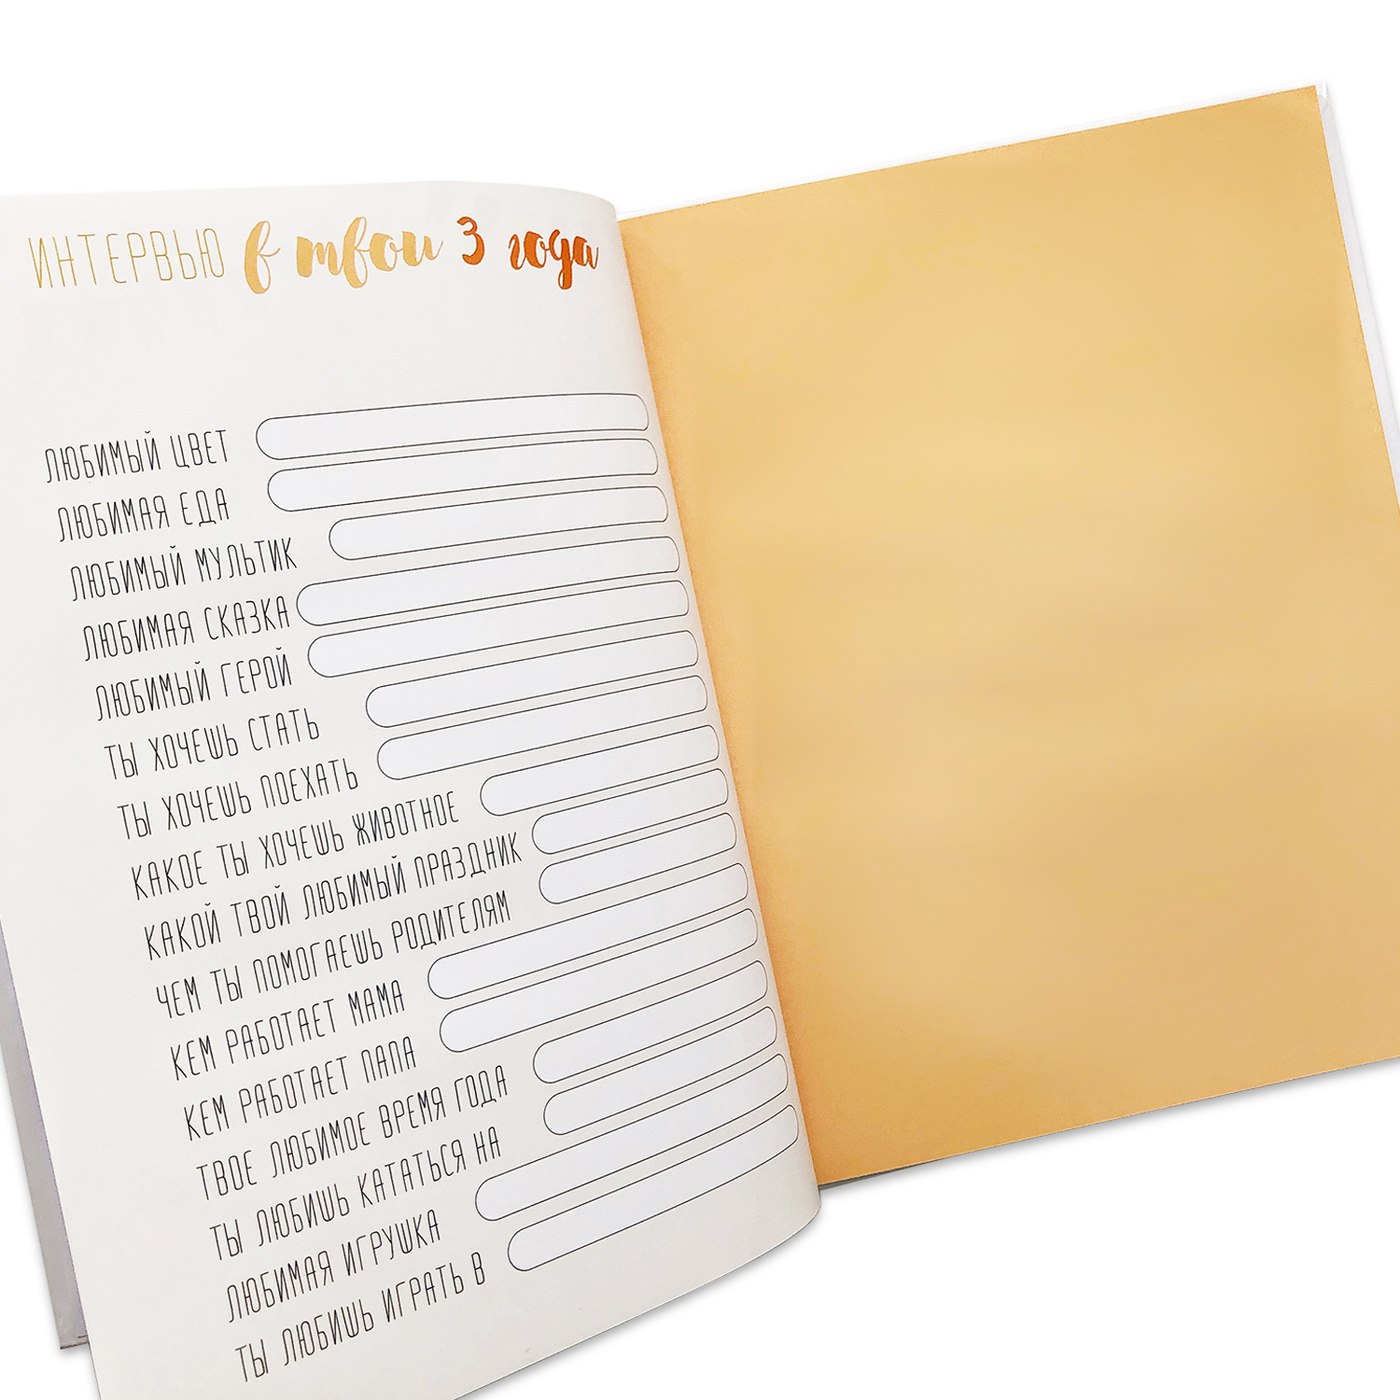 ИНТЕРВЬЮ в твои 3 года
ЛЮБИМЫЙ ЦВЕТ
ЛЮБИМАЯ ЕДА
ЛЮБИМЫЙ МУЛЬТИК
ЛЮБИМАЯ СКАЗКА
ЛЮБИМЫЙ ГЕРОЙ
ТЫ ХОЧЕШЬ СТАТЬ
ТЫ ХОЧЕШЬ ПОЕХАТЬ
КАКОЕ ТЫ ХОЧЕШЬ ЖИВОТНОЕ
КАКОЙ ТВОЙ ЛЮБИМЫЙ ПРАЗДНИК
ЧЕМ ТЫ ПОМОГАЕШЬ РОДИТЕЛЯМ
КЕМ РАБОТАЕТ МАМА
КЕМ РАБОТАЕТ ПАПА
ТВОЕ ЛЮБИМОЕ ВРЕМЯ ГОДА
ТЫ ЛЮБИШЬ КАТАТЬСЯ НА
ЛЮБИМАЯ ИГРУШКА
ТЫ ЛЮБИШЬ ИГРАТЬ В